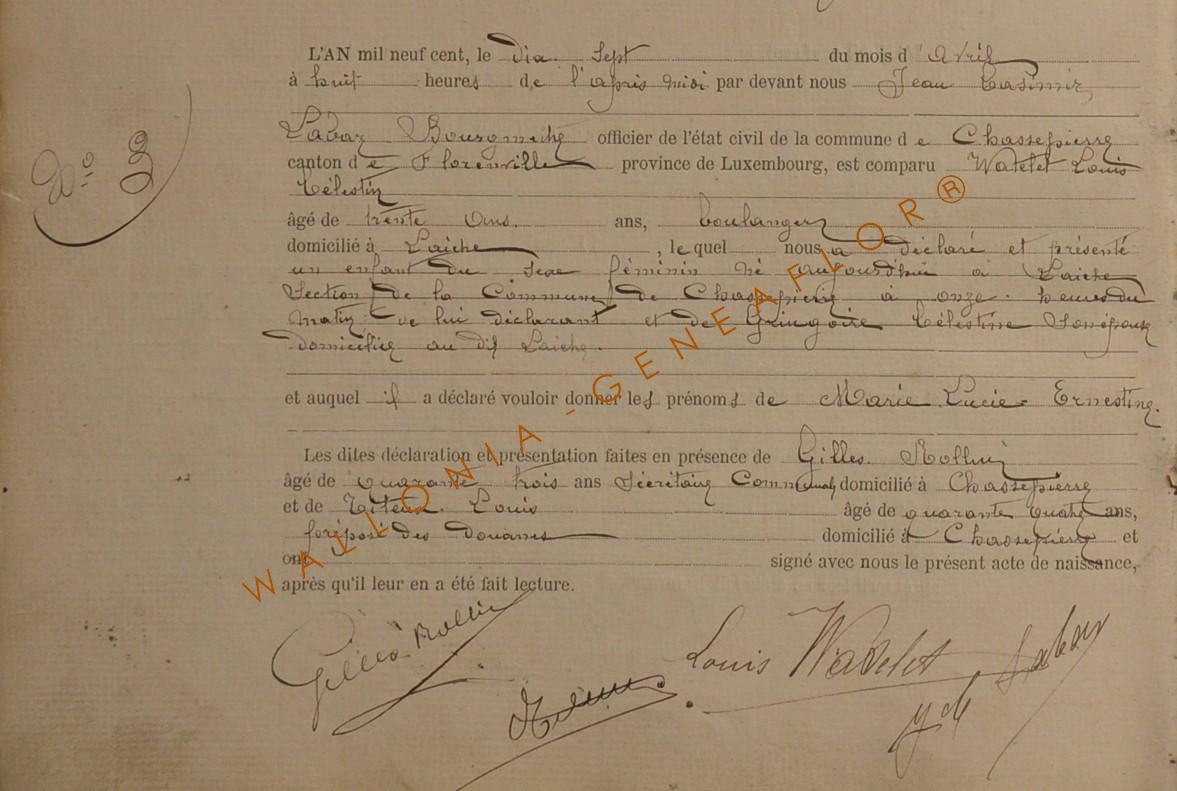 L'AN mil neuf cent, le dix sept du mois d'Avril
à huit heures de l'après midi par devant nous Jean Casimir,
Labar Bourgmestre officier de l'état civil de la commune de Chassepierre
canton de Florenville province de Luxembourg, est comparu Watelet Louis
Célestin
âgé de trente ans, boulanger
domicilié à Laiche, lequel nous a déclaré et présenté
un enfant du sexe féminin né aujourd'hui à Laiche
Section de la Commune de Chassepierre à onze heures du
matin de lui déclarant et de Gringoire Célestine Son épouse
domiciliée au dit Laiche.
et auquel il a déclaré vouloir donner les prénoms de Marie Lucie Ernestine.
Les dites déclaration et présentation faites en présence de Gilles Rollin
âgé de quarante trois ans Sécrétaire Communal domicilié à Chassepierre
et de Louis âgé de quarante quatre ans,
préposé des Douanes domicilié à Chassepierre et
ont signé avec nous le présent acte de naissance,
après qu'il leur en a été fait lecture.
N° 3
Gilles Rollin
Louis Watelet
Labar
WALLONIA-GENEAFLOR®